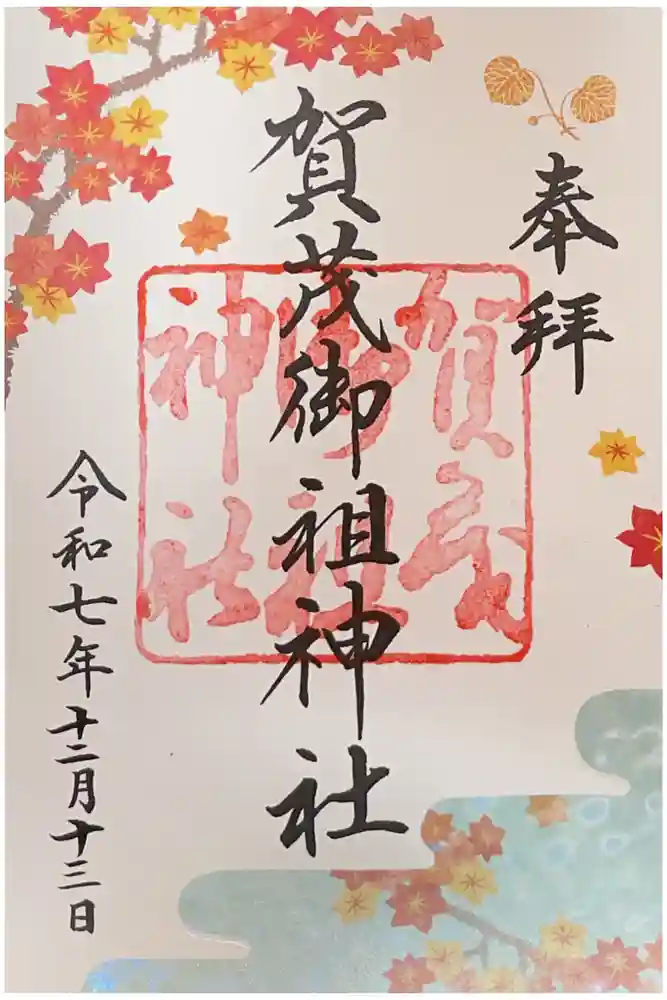 奉拝
賀茂御祖神社
賀茂御祖神社
令和七年十二月十三日